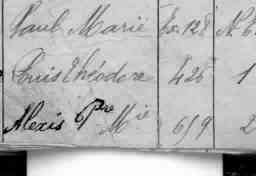 Paul Marie fo. 128 N. 6
Louis Théodore 426 1
Alexis Pre Mie 619 2